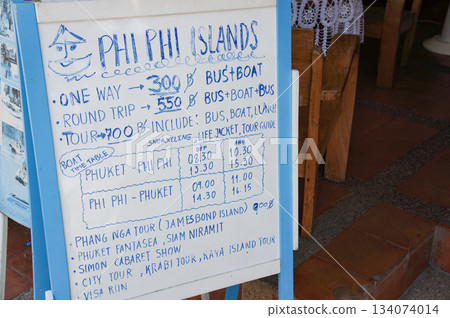 PHI PHI ISLANDS
• ONE WAY → 300 ฿ BUS+BOAT
• ROUND TRIP → 550 ฿ BUS+BOAT+BUS
TOUR → 700 ฿ INCLUDE: BUS, BOAT, LUNCH
SNORKELING, LIFE JACKET, TOUR GUIDE
BOAT TIME TABLE
DEP ARR
PHUKET - PHI PHI 08.30 10.30
13.30 15.30
PHI PHI - PHUKET 09.00 11.00
14.30 16.15
• PHANG NGA TOUR (JAMESBOND ISLAND) 900 ฿
• PHUKET FANTASEA, SIAM NIRAMIT
• SIMON CABARET SHOW
• CITY TOUR, KRABI TOUR, KAYA ISLAND TOUR
• VISA RUN
123RF
134074014